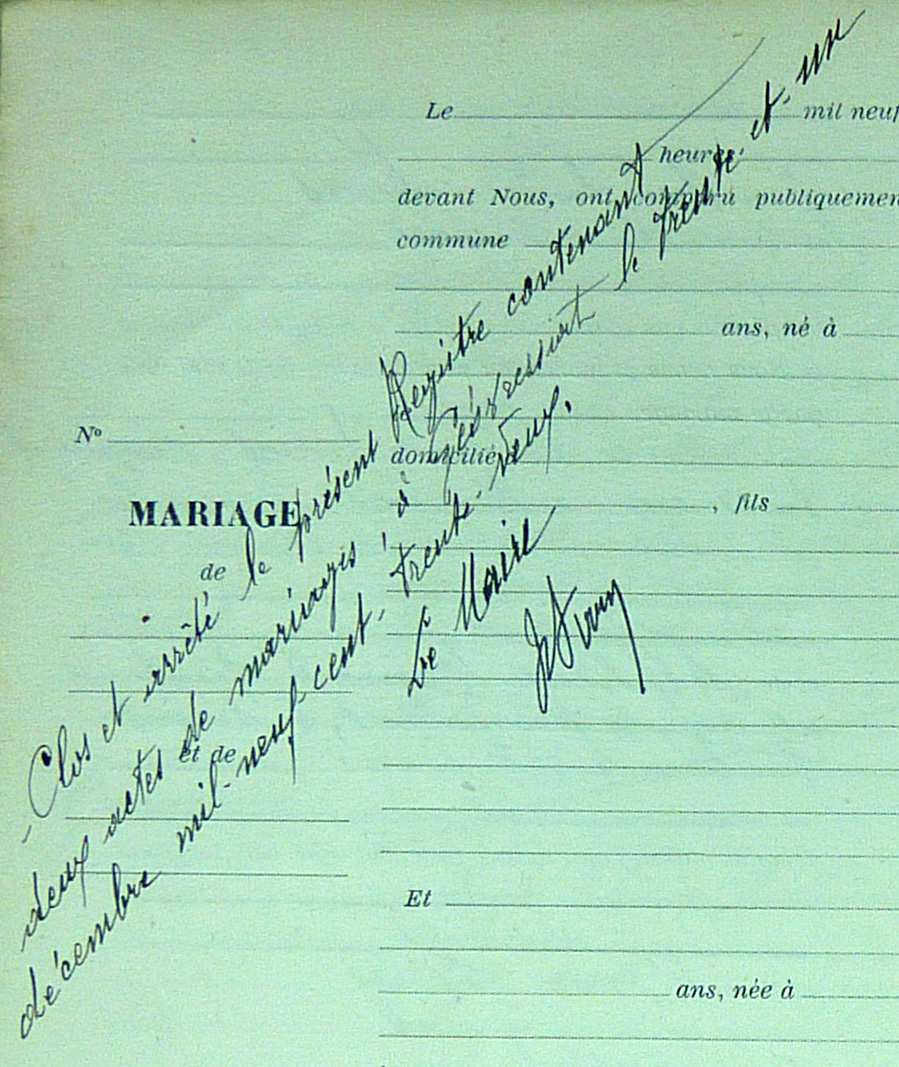 Le mil neuf
heures
devant Nous, ont comparu publiquemen
commune
ans, né à
N°
domicilié
MARIAGE
, fils
de
et de
Et
ans, née à
- Clos et arrêté le présent Registre contenant
deux actes de mariages, à le trente-et-un
décembre mil-neuf-cent-trente-deux.
Le Maire